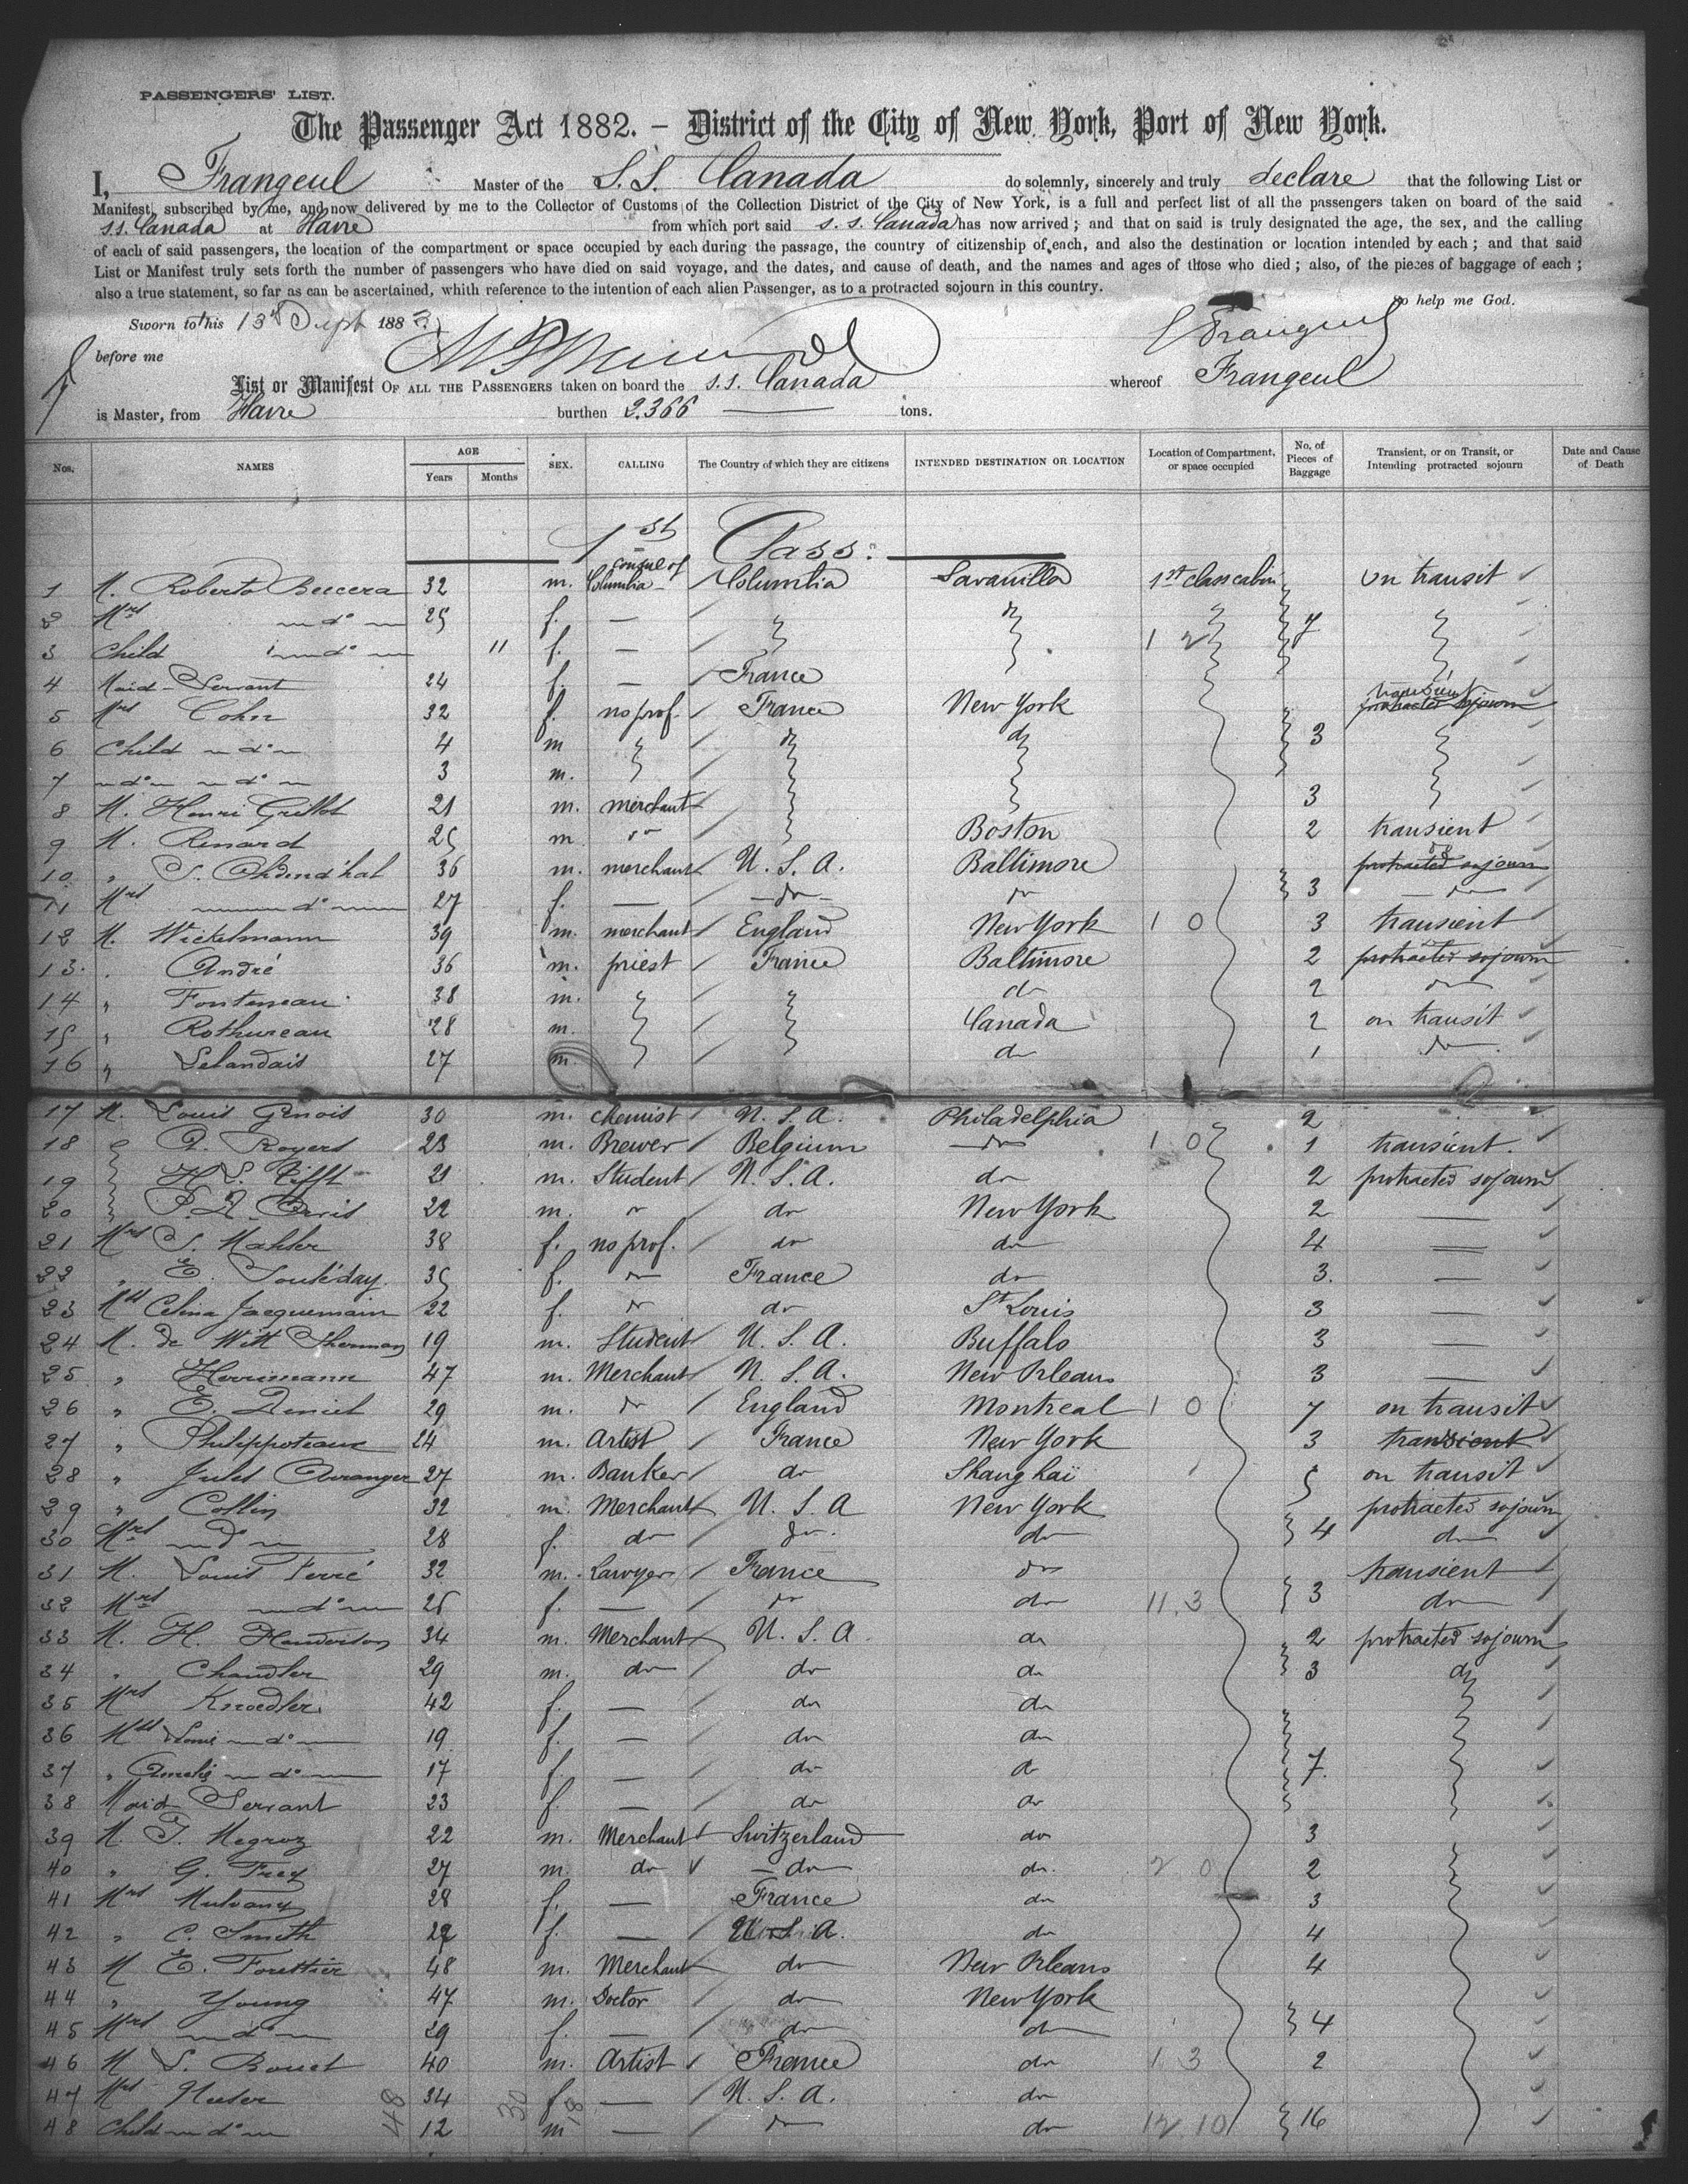 PASSENGERS' LIST.
The Passenger Act 1882. – District of the City of New York, Port of New York.
I, Frangeul Master of the S.S. Canada do solemnly, sincerely and truly declare that the following List or
Manifest, subscribed by me, and now delivered by me to the Collector of Customs of the Collection District of the City of New York, is a full and perfect list of all the passengers taken on board of the said
s.s. Canada at Havre from which port said s.s. Canada has now arrived; and that on said is truly designated the age, the sex, and the calling
of each of said passengers, the location of the compartment or space occupied by each during the passage, the country of citizenship of each, and also the destination or location intended by each; and that said
List or Manifest truly sets forth the number of passengers who have died on said voyage, and the dates, and cause of death, and the names and ages of those who died; also, of the pieces of baggage of each;
also a true statement, so far as can be ascertained, whith reference to the intention of each alien Passenger, as to a protracted sojourn in this country.
So help me God.
Sworn to this 13th Sept 1883
Frangeul
before me
List or Manifest OF ALL THE PASSENGERS taken on board the s.s. Canada whereof Frangeul
is Master, from Havre burthen 2.366 tons.
Nos. NAMES AGE Years Months SEX. CALLING The Country of which they are citizens INTENDED DESTINATION OR LOCATION Location of Compartment, or space occupied No. of Pieces of Baggage Transient, or on Transit, or Intending protracted sojourn Date and Cause of Death
1st Class:
1 M. Roberto Beccera 32 m. consul of Columbia Columbia Savanilla 1st class cabin on transit
2 Mrs do 25 f. — do 7
3 Child do 11 f. — 1 2
4 Maid-Servant 24 f. — France
5 Mrs Cohn 32 f. no prof. France New York transient protracted sojourn
6 Child do 4 m do do 3
7 do do 3 m.
8 M. Henri Grillot 21 m. merchant 3
9 M. Renard 25 m do Boston 2 transient
10 " S. 36 m. merchant U.S.A. Baltimore do protracted sojourn
11 Mrs do 27 f. — do do 3 do
12 M. Wickelmann 39 m. merchant England New York 1 0 3 transient
13 . André 36 m. priest France Baltimore 2 protracted sojourn
14 " Fonteneau 38 m. do 2 do
15 " Rothureau 28 m. Canada 2 on transit
16 " Lelandais 27 m. do 1 do
17 M. Louis Genois 30 m. Chemist U.S.A. Philadelphia 2
18 A. Royers 23 m. Brewer Belgium do 1 0 1 transient.
19 H.S. Tifft 21 m. Student U.S.A. do 2 protracted sojourn
20 22 m. do do New York 2 —
21 Mrs S. Mahler 38 f. no prof. do do 4 —
22 " E. Soulé day 35 f. do France do 3. —
23 Mll Celina Jacquemain 22 f. do do St Louis 3 —
24 M. de Witt Sherman 19 m. Student U.S.A. Buffalo 3 —
25 " Herrimann 47 m. Merchant U.S.A. New Orleans 3 —
26 " E. 29 m. do England Montreal 1 0 7 on transit
27 " Philippoteaux 24 m. Artist France New York 3 transient
28 " Jules 27 m. Banker do Shanghaï 5 on transit
29 " Collin 32 m. Merchant U.S.A New York protracted sojourn
30 Mrs do 28 f. do do do 4 do
31 M. Louis Ferré 32 m. Lawyer France do transient
32 Mrs do 26 f. — do do 11.3 3 do
33 M. H. Henderson 34 m. Merchant U.S.A. do 2 protracted sojourn
34 " Chandler 29 m. do do do 3 do
35 Mrs Knoedler 42 f. — do do
36 Mll do 19 f. — do do
37 " Amelie do 17 f. — do do 7.
38 Maid Servant 23 f. — do do
39 M. T. Megroz 22 m. Merchant Switzerland do 3
40 " G. Frey 27 m. do do do. 2 0 2
41 Mrs Mulvany 28 f. — France do 3
42 " C. Smith 22 f. — U.S.A. do 4
43 M E. Forettier 48 m. Merchant do New Orleans 4
44 " Young 47 m. Doctor do New York
45 Mrs do 29 f. — do do 4
46 M S. Bouet 40 m. Artist France do 1 3 2
47 Mrs 34 f — U.S.A. do
48 Child do 12 m — do do 12 10 16
48 30 18